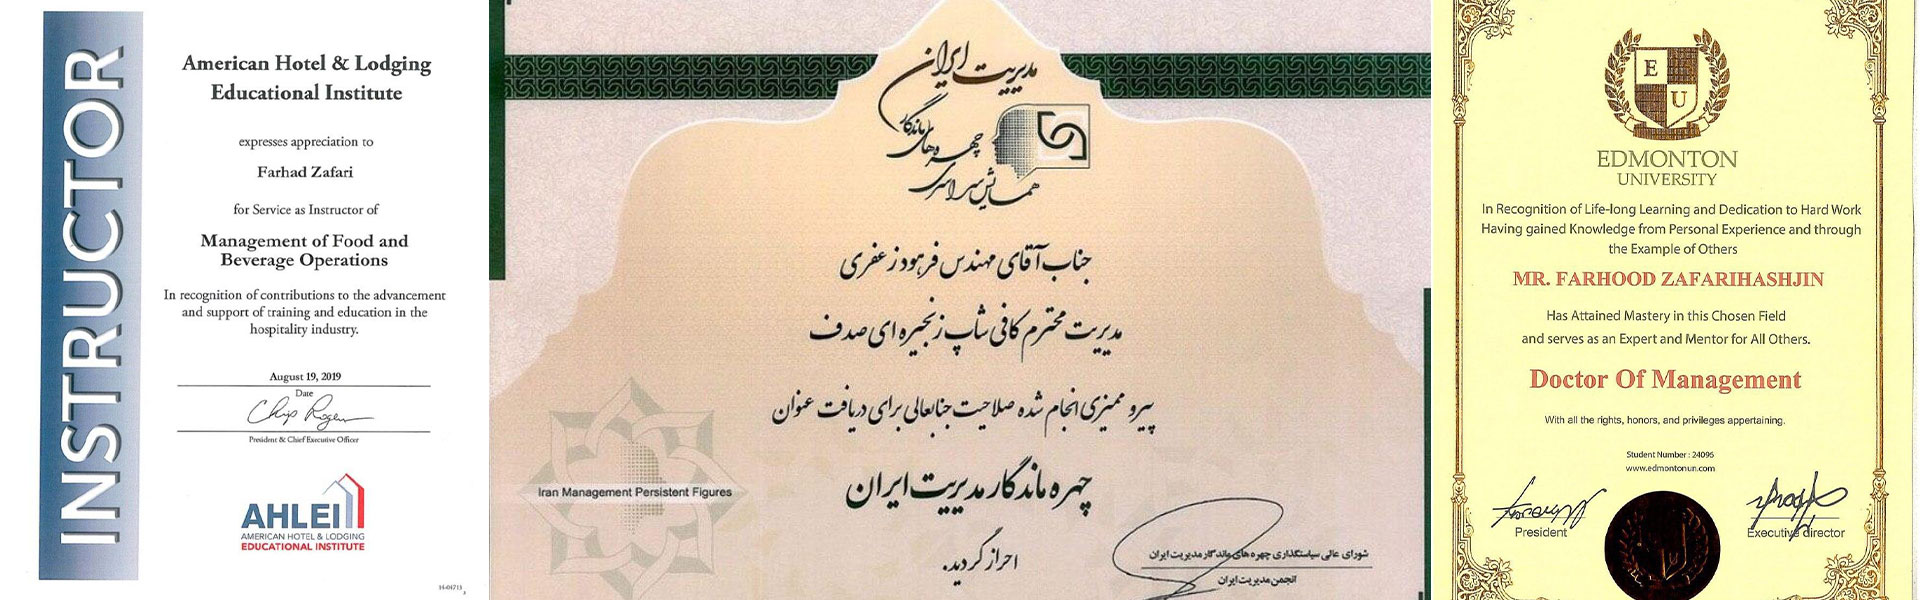 INSTRUCTOR
American Hotel & Lodging
Educational Institute
expresses appreciation to
Farhad Zafari
for Service as Instructor of
Management of Food and
Beverage Operations
In recognition of contributions to the advancement
and support of training and education in the
hospitality industry.
August 19, 2019
Date
President & Chief Executive Officer
AHLEI
AMERICAN HOTEL & LODGING
EDUCATIONAL INSTITUTE
مدیریت ایران
همایش سراسری چهره‌های ماندگار
جناب آقای مهندس فرهود زعفری
مدیریت محترم کافی شاپ زنجیره ای صدف
پیرو ممیزی انجام شده صلاحیت جنابعالی برای دریافت عنوان
چهره ماندگار مدیریت ایران
احراز گردید.
Iran Management Persistent Figures
شورای عالی سیاستگذاری چهره های ماندگار مدیریت ایران
انجمن مدیریت ایران
E
U
EDMONTON
UNIVERSITY
In Recognition of Life-long Learning and Dedication to Hard Work
Having gained Knowledge from Personal Experience and through
the Example of Others
MR. FARHOOD ZAFARIHASHJIN
Has Attained Mastery in this Chosen Field
and serves as an Expert and Mentor for All Others.
Doctor Of Management
With all the rights, honors, and privileges appertaining.
Student Number : 24096
www.edmontonun.com
President
Executive director